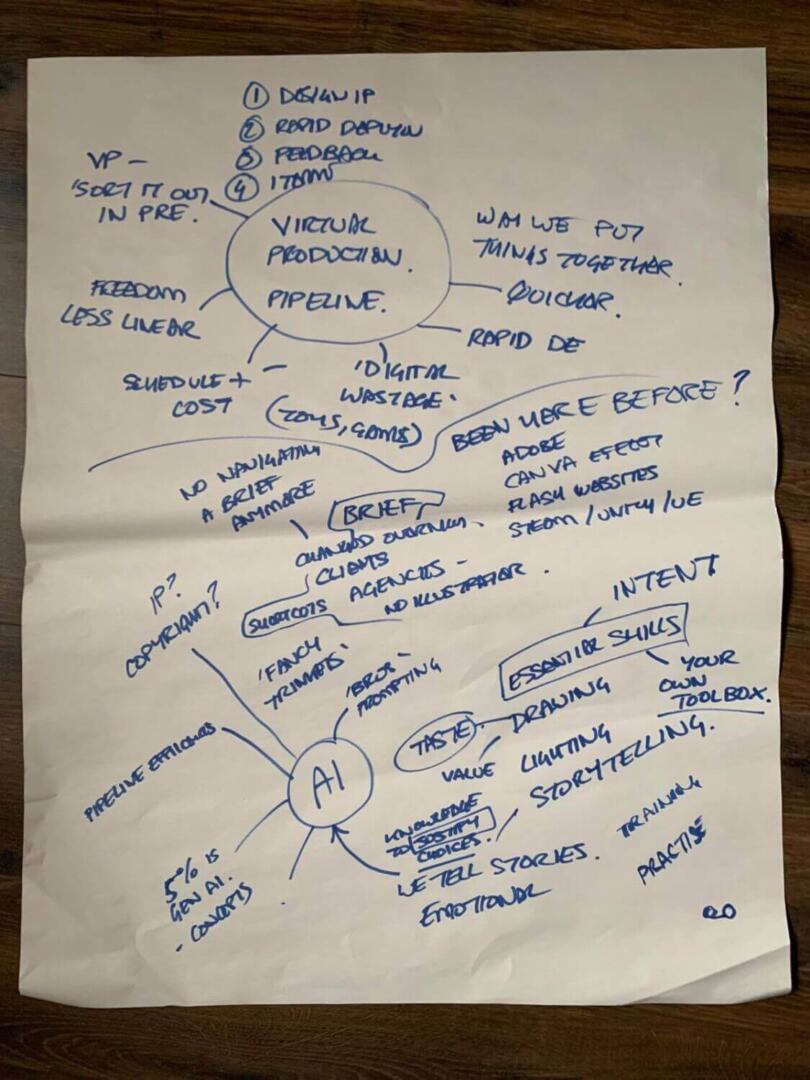 ① DESIGN IP
② RAPID DEPLOYM
③ FEEDBACK
④
VP -
'SORT IT OUT
IN PRE.
VIRTUAL
PRODUCTION.
PIPELINE.
WAY WE PUT
THINGS TOGETHER.
QUICKER.
RAPID DE
FREEDOM
LESS LINEAR
SCHEDULE +
COST
'DIGITAL
WASTAGE'
(TOYS, GAMES)
BEEN HERE BEFORE?
ADOBE
CANVA EFFECT
FLASH WEBSITES
STEAM / UNITY / UE
NO NAVIGATING
A BRIEF
ANYMORE
BRIEF
CHANGED OVERNIGHT
CLIENTS
AGENCIES -
NO ILLUSTRATOR.
SHORTCUTS
IP?
COPYRIGHT?
'FANCY
TRINKETS'
'BROS'
PROMPTING
PIPELINE EFFICIENCIES
AI
5% IS
GEN AI.
- CONCEPTS
INTENT
ESSENTIAL SKILLS
YOUR
OWN
TOOLBOX.
TASTE
DRAWING
VALUE
LIGHTING
STORYTELLING.
KNOWLEDGE
TO JUSTIFY
CHOICES.
WE TELL STORIES.
EMOTIONAL
TRAINING
PRACTISE